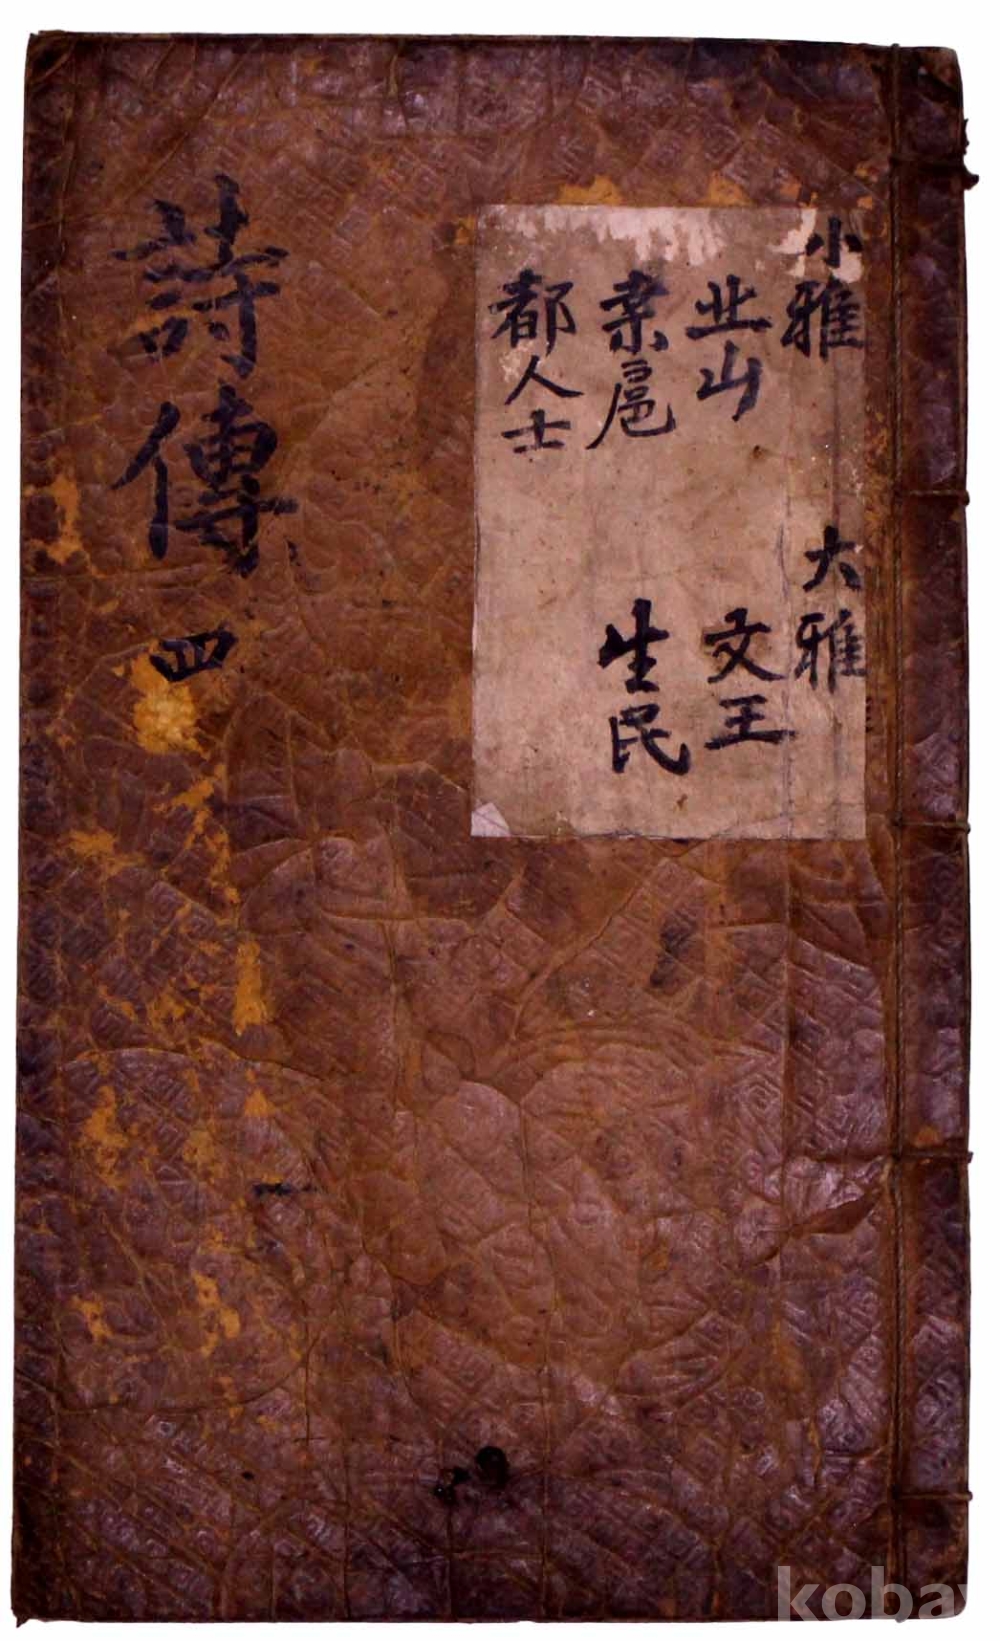 小雅 大雅
北山 文王
桑扈 生民
都人士
詩傳 四
kobay